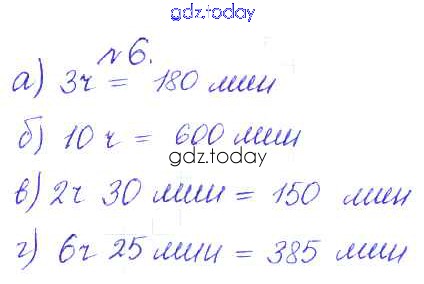 gdz.today
№6.
а) 3ч = 180 мин
б) 10 ч = 600 мин
gdz.today
в) 2ч 30 мин = 150 мин
г) 6ч 25 мин = 385 мин